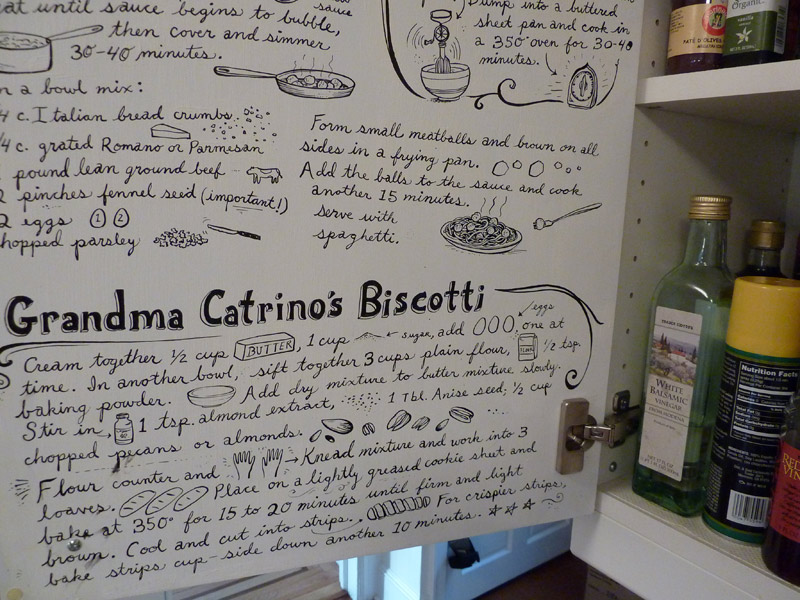 eat until sauce begins to bubble,
sauce
then cover and simmer
30-40 minutes.
Dump into a buttered
sheet pan and cook in
a 350° oven for 30-40
minutes.
n a bowl mix:
/4 c. Italian bread crumbs
/4 c. grated Romano or Parmesan
pound lean ground beef
2 pinches fennel seed (important!)
2 eggs 1 2
hopped parsley
Form small meatballs and brown on all
sides in a frying pan.
Add the balls to the sauce and cook
another 15 minutes.
serve with
spaghetti.
Grandma Catrino's Biscotti
Cream together 1/2 cup BUTTER, 1 cup ← sugar, add eggs, one at
time. In another bowl, sift together 3 cups plain flour, 1/2 tsp.
baking powder. Add dry mixture to butter mixture slowly.
Stir in 1 tsp. almond extract, 1 Tbl. Anise seed, 1/2 cup
chopped pecans or almonds.
Flour counter and → Knead mixture and work into 3
loaves. Place on a lightly greased cookie sheet and
bake at 350° for 15 to 20 minutes until firm and light
brown. Cool and cut into strips. For crispier strips,
bake strips cup-side down another 10 minutes.
PATÉ D'OLIVES
Organic
vanilla
TRADER GIOTTO'S
WHITE
BALSAMIC
VINEGAR
Nutrition Facts
RED
VIN